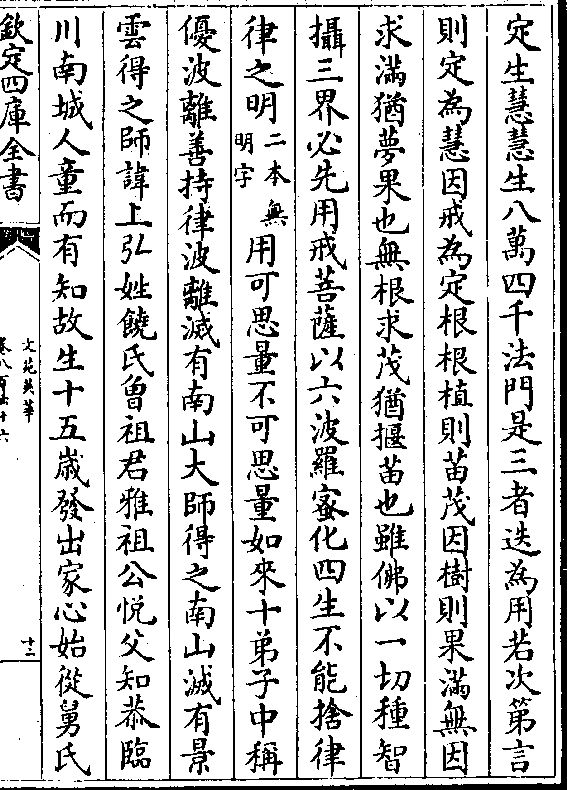 定生慧慧生八萬四千法門是三者迭為用若次第言
則定為慧因戒為定根根植則苗茂因樹則果滿無因
求滿猶夢果也無根求茂猶揠苗也雖佛以一切種智
攝三界必先用戒菩薩以六波羅蜜化四生不能捨律
律之明二本無明字用可思量不可思量如來十弟子中稱
優波離善持律波離滅有南山大師得之南山滅有景
雲得之師諱上弘姓饒氏曾祖君雅祖公悅父知恭臨
川南城人童而有知故生十五歲發出家心始從舅氏
欽定四庫全書
文苑英華
十二